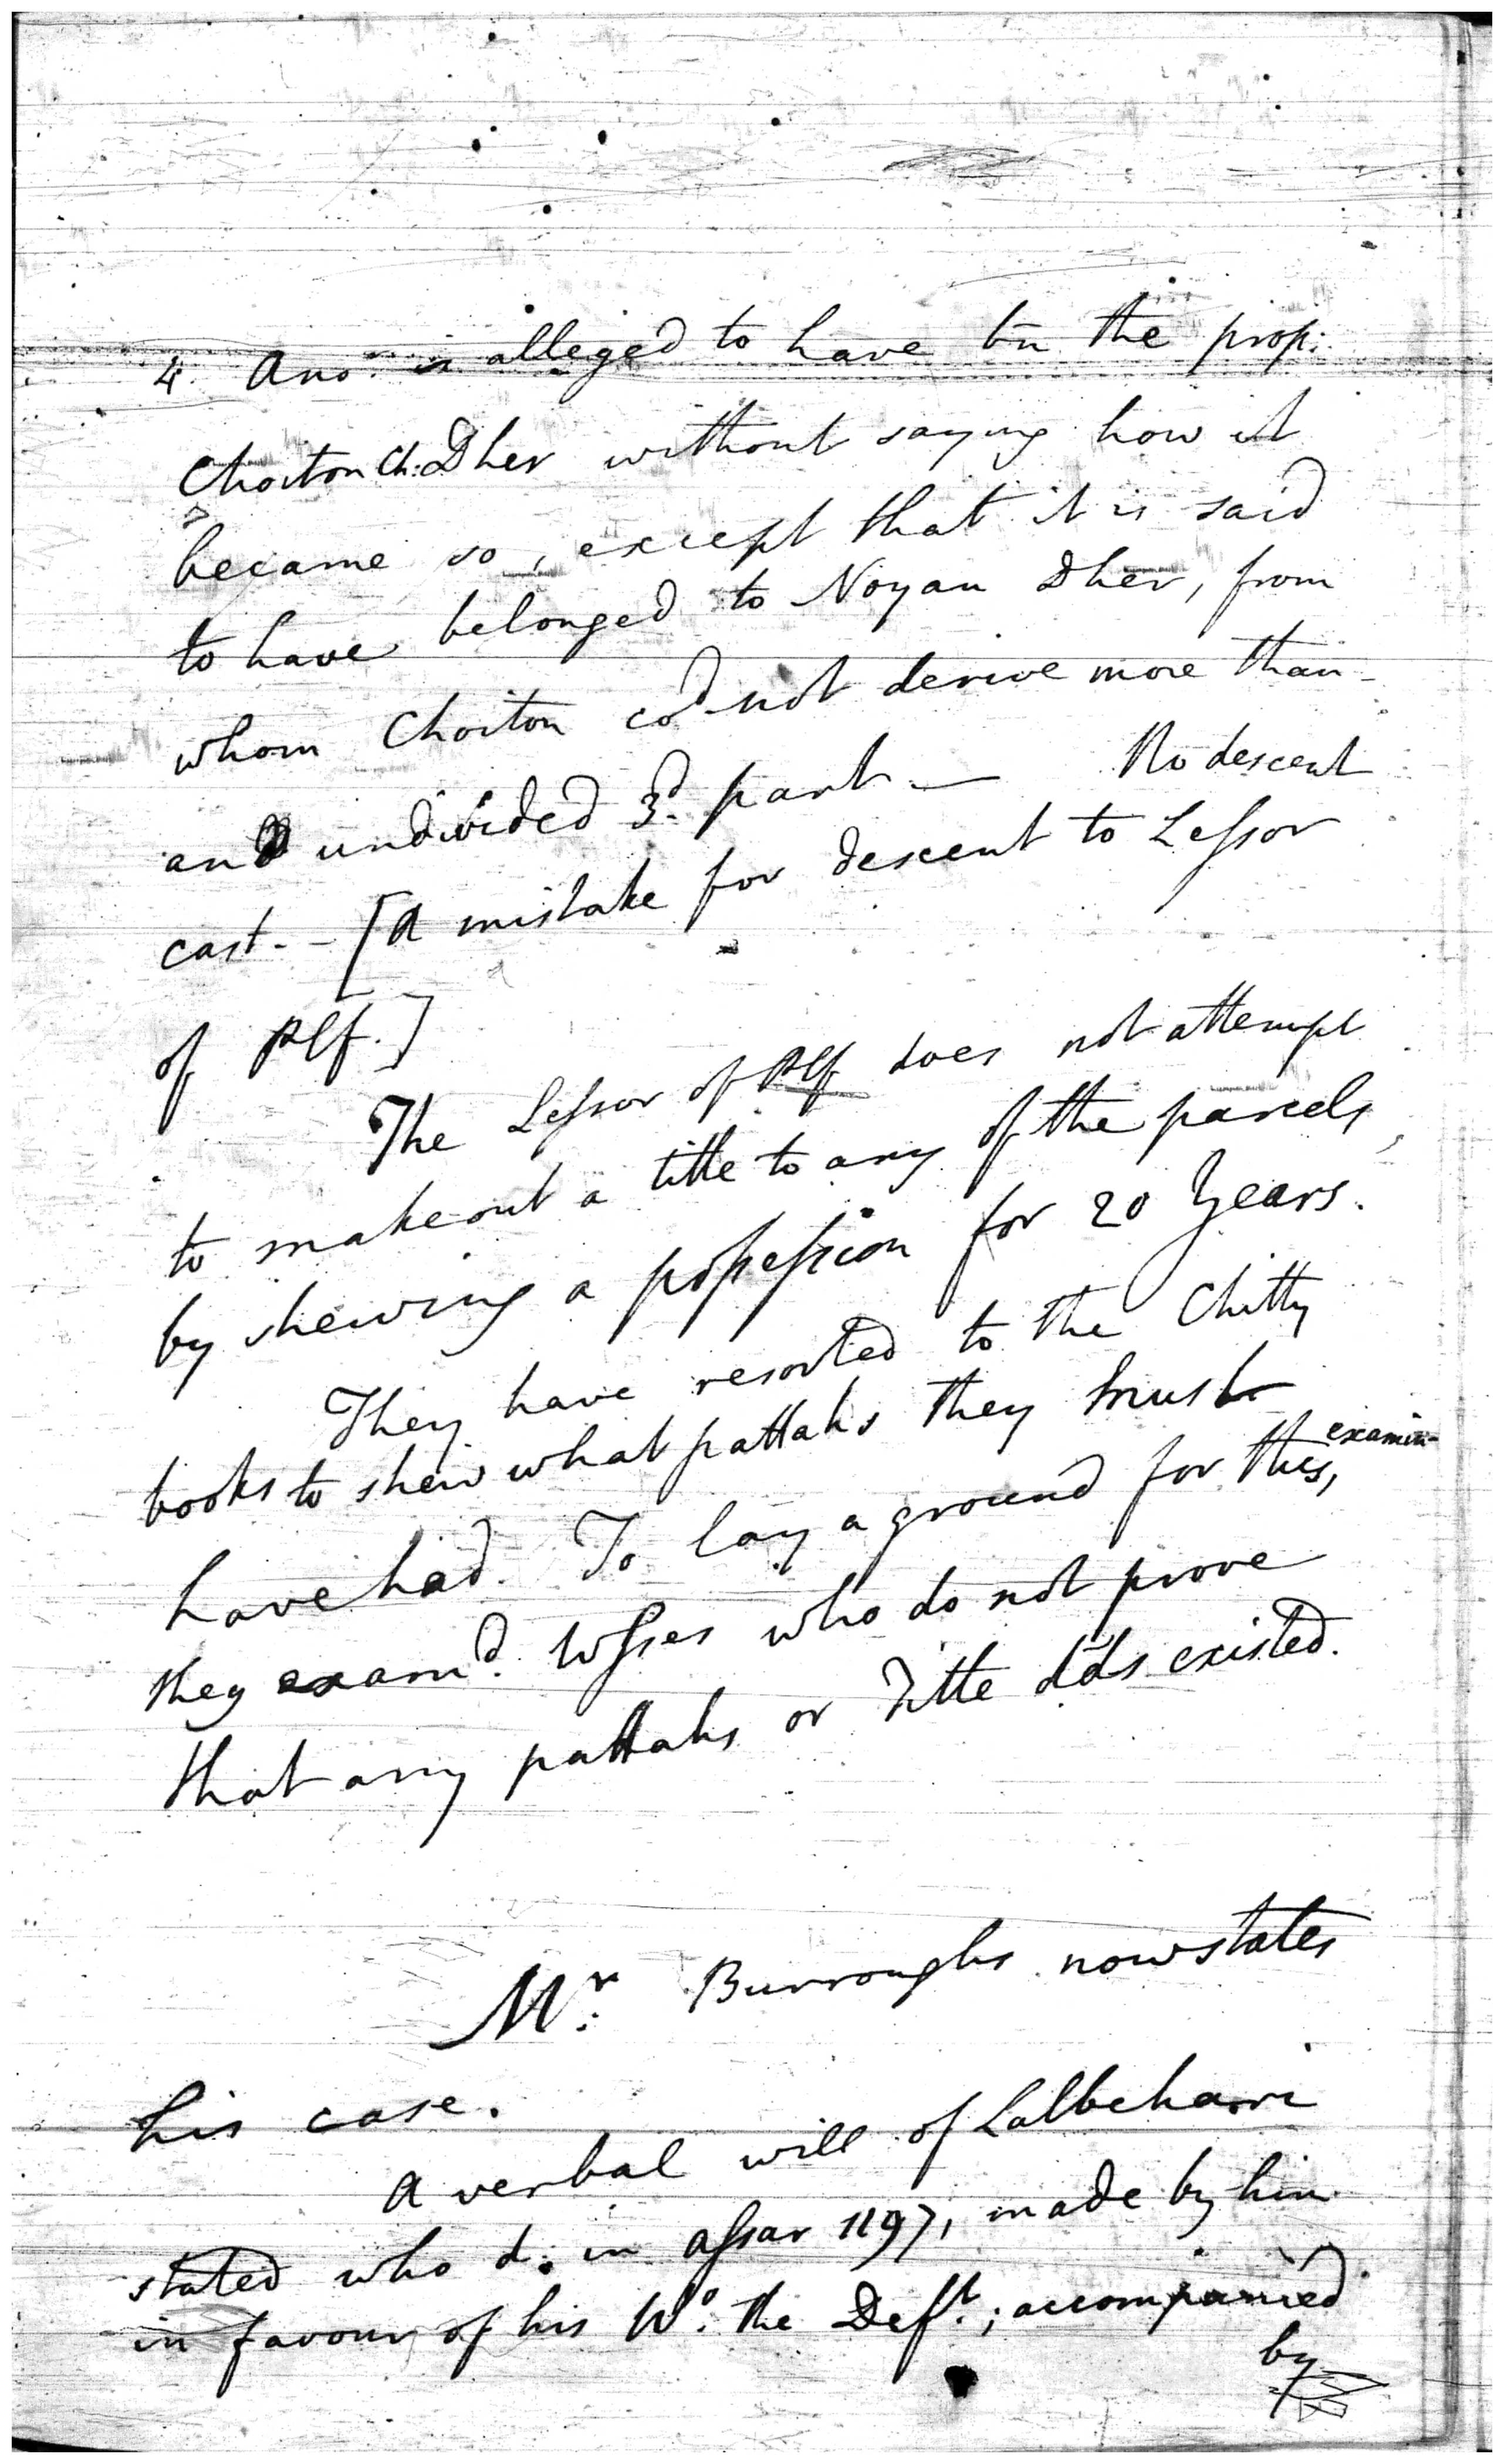 4. Ano.r is alleged to have bn the prop:
Choiton Ch: Dher without saying how it
became so, except that it is said
to have belonged to Noyan Dher, from
whom Choiton cod not derive more than
an undivided 3d. part — No descent
cast. - [A mistake for descent to Lessor
of Plf.]
The Lessor of Plf does not attempt
to make out a title to any of the parcels,
by shewing a possession for 20 Years.
They have resorted to the Chitty
books to shew what pattahs they must
have had. To lay a ground for this, examin-
they examd. Wsses who do not prove
that any pattahs or Title dds existed.
Mr. Burroughs now states
his case.
A verbal will of Lalbeharri
stated who d. in Assar 1197, made by him
in favour of his Wo. the Deft.; accompanied
by